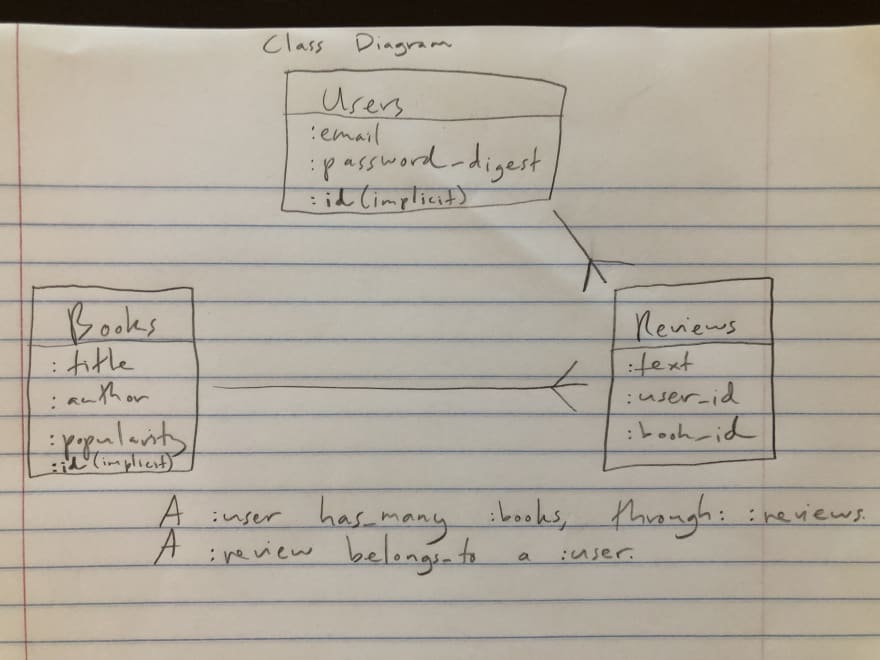 Class Diagram
Users
:email
:password_digest
:id (implicit)
Books
:title
:author
:popularity
:id (implicit)
Reviews
:text
:user_id
:book_id
A :user has_many :books, through: :reviews.
A :review belongs_to a :user.